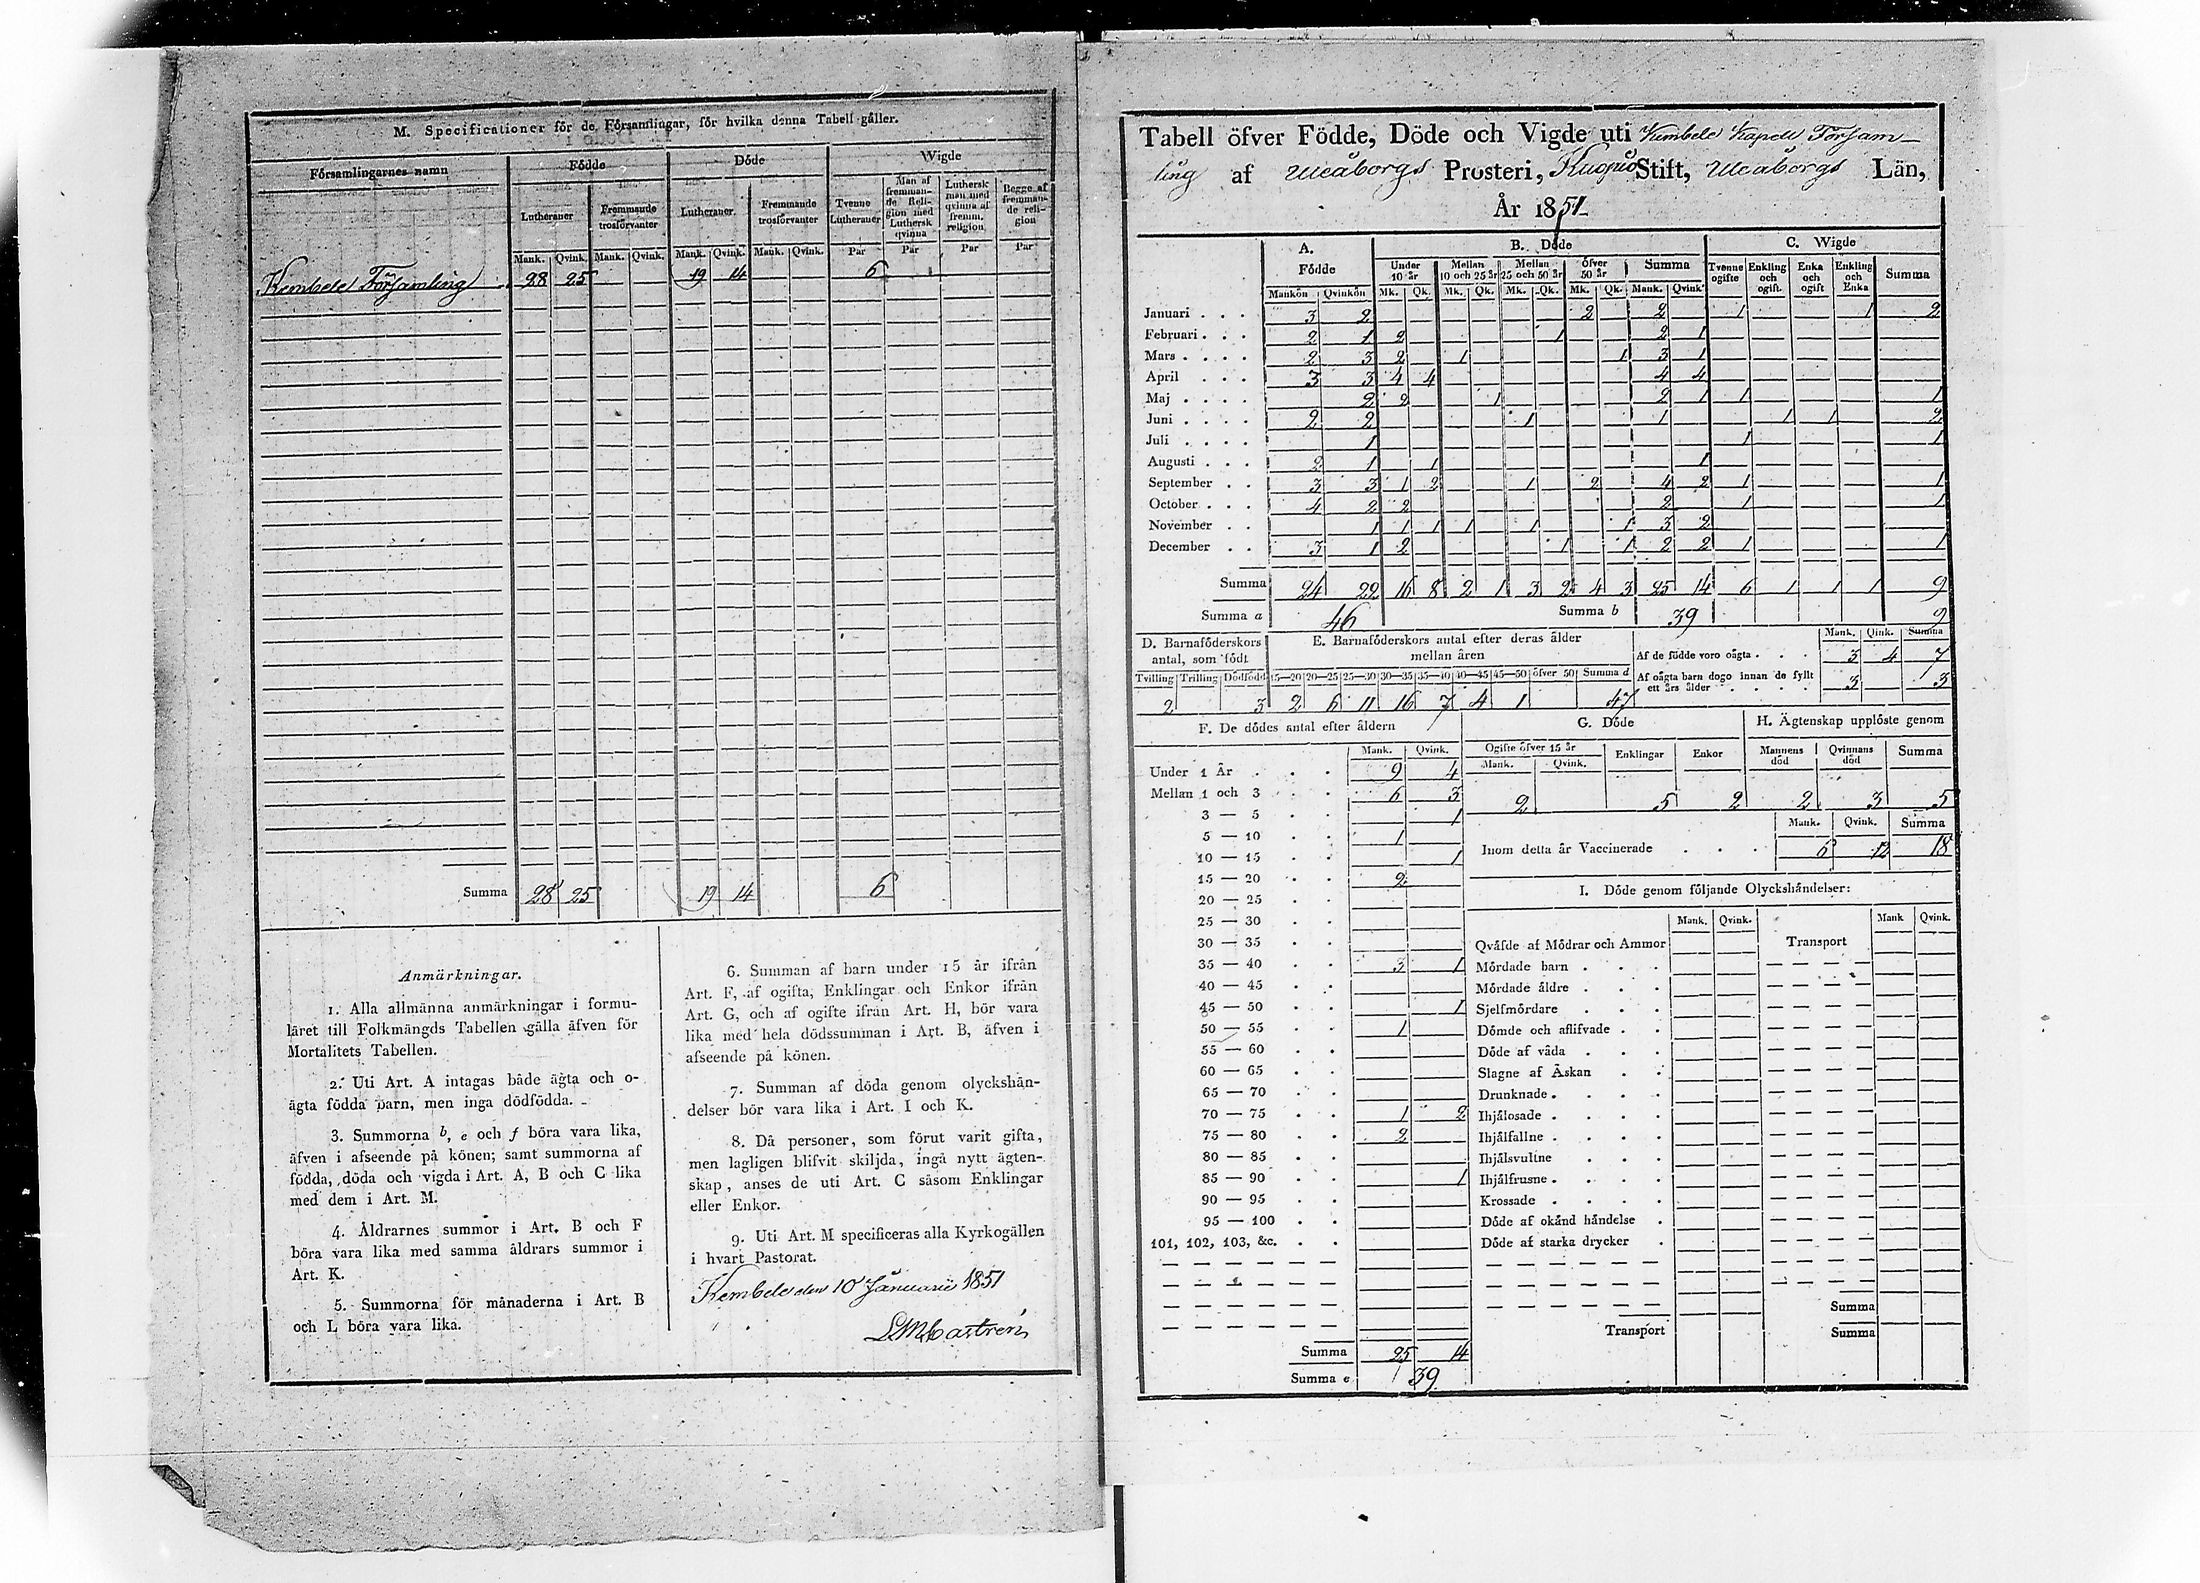 M. Specificationer för de Församlingar, för hvilka denna Tabell gäller.
Församlingarnes namn Födde Döde Wigde
Lutheraner Fremmande trosförvanter Lutheraner. Fremmande trosförvanter Tvenne Lutheraner Man af fremmande Religion med Luthersk qvinna Luthersk man med qvinna af fremm. religion Begge af fremmande religion
Mank. Qvink. Mank. Qvink. Mank. Qvink. Mank. Qvink. Par Par Par Par
Kembele Församling 28 25 19 14 6
Summa 28 25 19 14 6
Anmärkningar.
1. Alla allmänna anmärkningar i formu-
läret till Folkmängds Tabellen gälla äfven för
Mortalitets Tabellen.
2. Uti Art. A intagas både ägta och o-
ägta födda barn, men inga dödfödda.
3. Summorna b, e och f böra vara lika,
äfven i afseende på könen; samt summorna af
födda, döda och vigda i Art. A, B och C lika
med dem i Art. M.
4. Åldrarnes summor i Art. B och F
böra vara lika med samma åldrars summor i
Art. K.
5. Summorna för månaderna i Art. B
och L böra vara lika.
6. Summan af barn under 15 år ifrån
Art. F, af ogifta, Enklingar och Enkor ifrån
Art. G, och af ogifte ifrån Art. H, bör vara
lika med hela dödssumman i Art. B, äfven i
afseende på könen.
7. Summan af döda genom olyckshän-
delser bör vara lika i Art. I och K.
8. Då personer, som förut varit gifta,
men lagligen blifvit skiljda, ingå nytt ägten-
skap, anses de uti Art. C såsom Enklingar
eller Enkor.
9. Uti Art. M specificeras alla Kyrkogällen
i hvart Pastorat.
Kembele den 10 Januarii 1851
LMCastrén
Tabell öfver Födde, Döde och Vigde uti Kembele Kapell Försam-
ling af Uleåborgs Prosteri, Kuopio Stift, Uleåborgs Län,
År 1851
A. Födde B. Döde C. Wigde
Under 10 år Mellan 10 och 25 år Mellan 25 och 50 år Öfver 50 år Summa Tvenne ogifte Enkling och ogift. Enka och ogift Enkling och Enka Summa
Mankön Qvinkön Mk. Qk. Mk. Qk. Mk. Qk. Mk. Qk. Mank. Qvink.
Januari 3 2 2 2 1 1 2
Februari 2 1 2 1 2 1
Mars 2 3 2 1 1 3 1
April 3 3 4 4 4 4
Maj 2 2 1 2 1 1 1
Juni 2 2 1 1 1 1 2
Juli 1 1 1
Augusti 2 1 1 1
September 3 3 1 2 1 2 4 2 1 1
October 4 2 2 2 1 1
November 1 1 1 1 1 1 3 2
December 3 1 2 1 1 2 2 1 1
Summa 24 22 16 8 2 1 3 2 4 3 25 14 6 1 1 1 9
Summa a 46 Summa b 39 9
D. Barnaföderskors antal, som födt
Tvilling Trilling Dödfödd
2 3
E. Barnaföderskors antal efter deras ålder
mellan åren
15—20 20—25 25—30 30—35 35—40 40—45 45—50 öfver 50 Summa d
2 6 11 16 7 4 1 47
Mank. Qink. Summa
Af de födde voro oägta 3 4 7
Af oägta barn dogo innan de fyllt
ett års ålder 3 3
F. De dödes antal efter åldern
Mank. Qvink.
Under 1 År 9 4
Mellan 1 och 3 6 3
3 — 5 1
5 — 10 1
10 — 15 1
15 — 20 2
20 — 25
25 — 30
30 — 35
35 — 40 3 1
40 — 45
45 — 50 1
50 — 55 1
55 — 60
60 — 65
65 — 70
70 — 75 1 2
75 — 80 2
80 — 85
85 — 90 1
90 — 95
95 — 100
101, 102, 103, &c.
Summa 25 14
Summa e 39
G. Döde
Ogifte öfver 15 år Enklingar Enkor
Mank. Qvink.
2 5 2
H. Ägtenskap upplöste genom
Mannens död Qvinnans död Summa
2 3 5
Mank. Qvink. Summa
Inom detta år Vaccinerade 6 12 18
I. Döde genom följande Olyckshändelser:
Mank. Qvink. Mank Qvink.
Qväfde af Mödrar och Ammor Transport
Mördade barn
Mördade äldre
Sjelfmördare
Dömde och aflifvade
Döde af våda
Slagne af Åskan
Drunknade
Ihjälosade
Ihjälfallne
Ihjälsvultne
Ihjälfrusne
Krossade
Döde af okänd händelse
Döde af starka drycker
Summa
Transport Summa